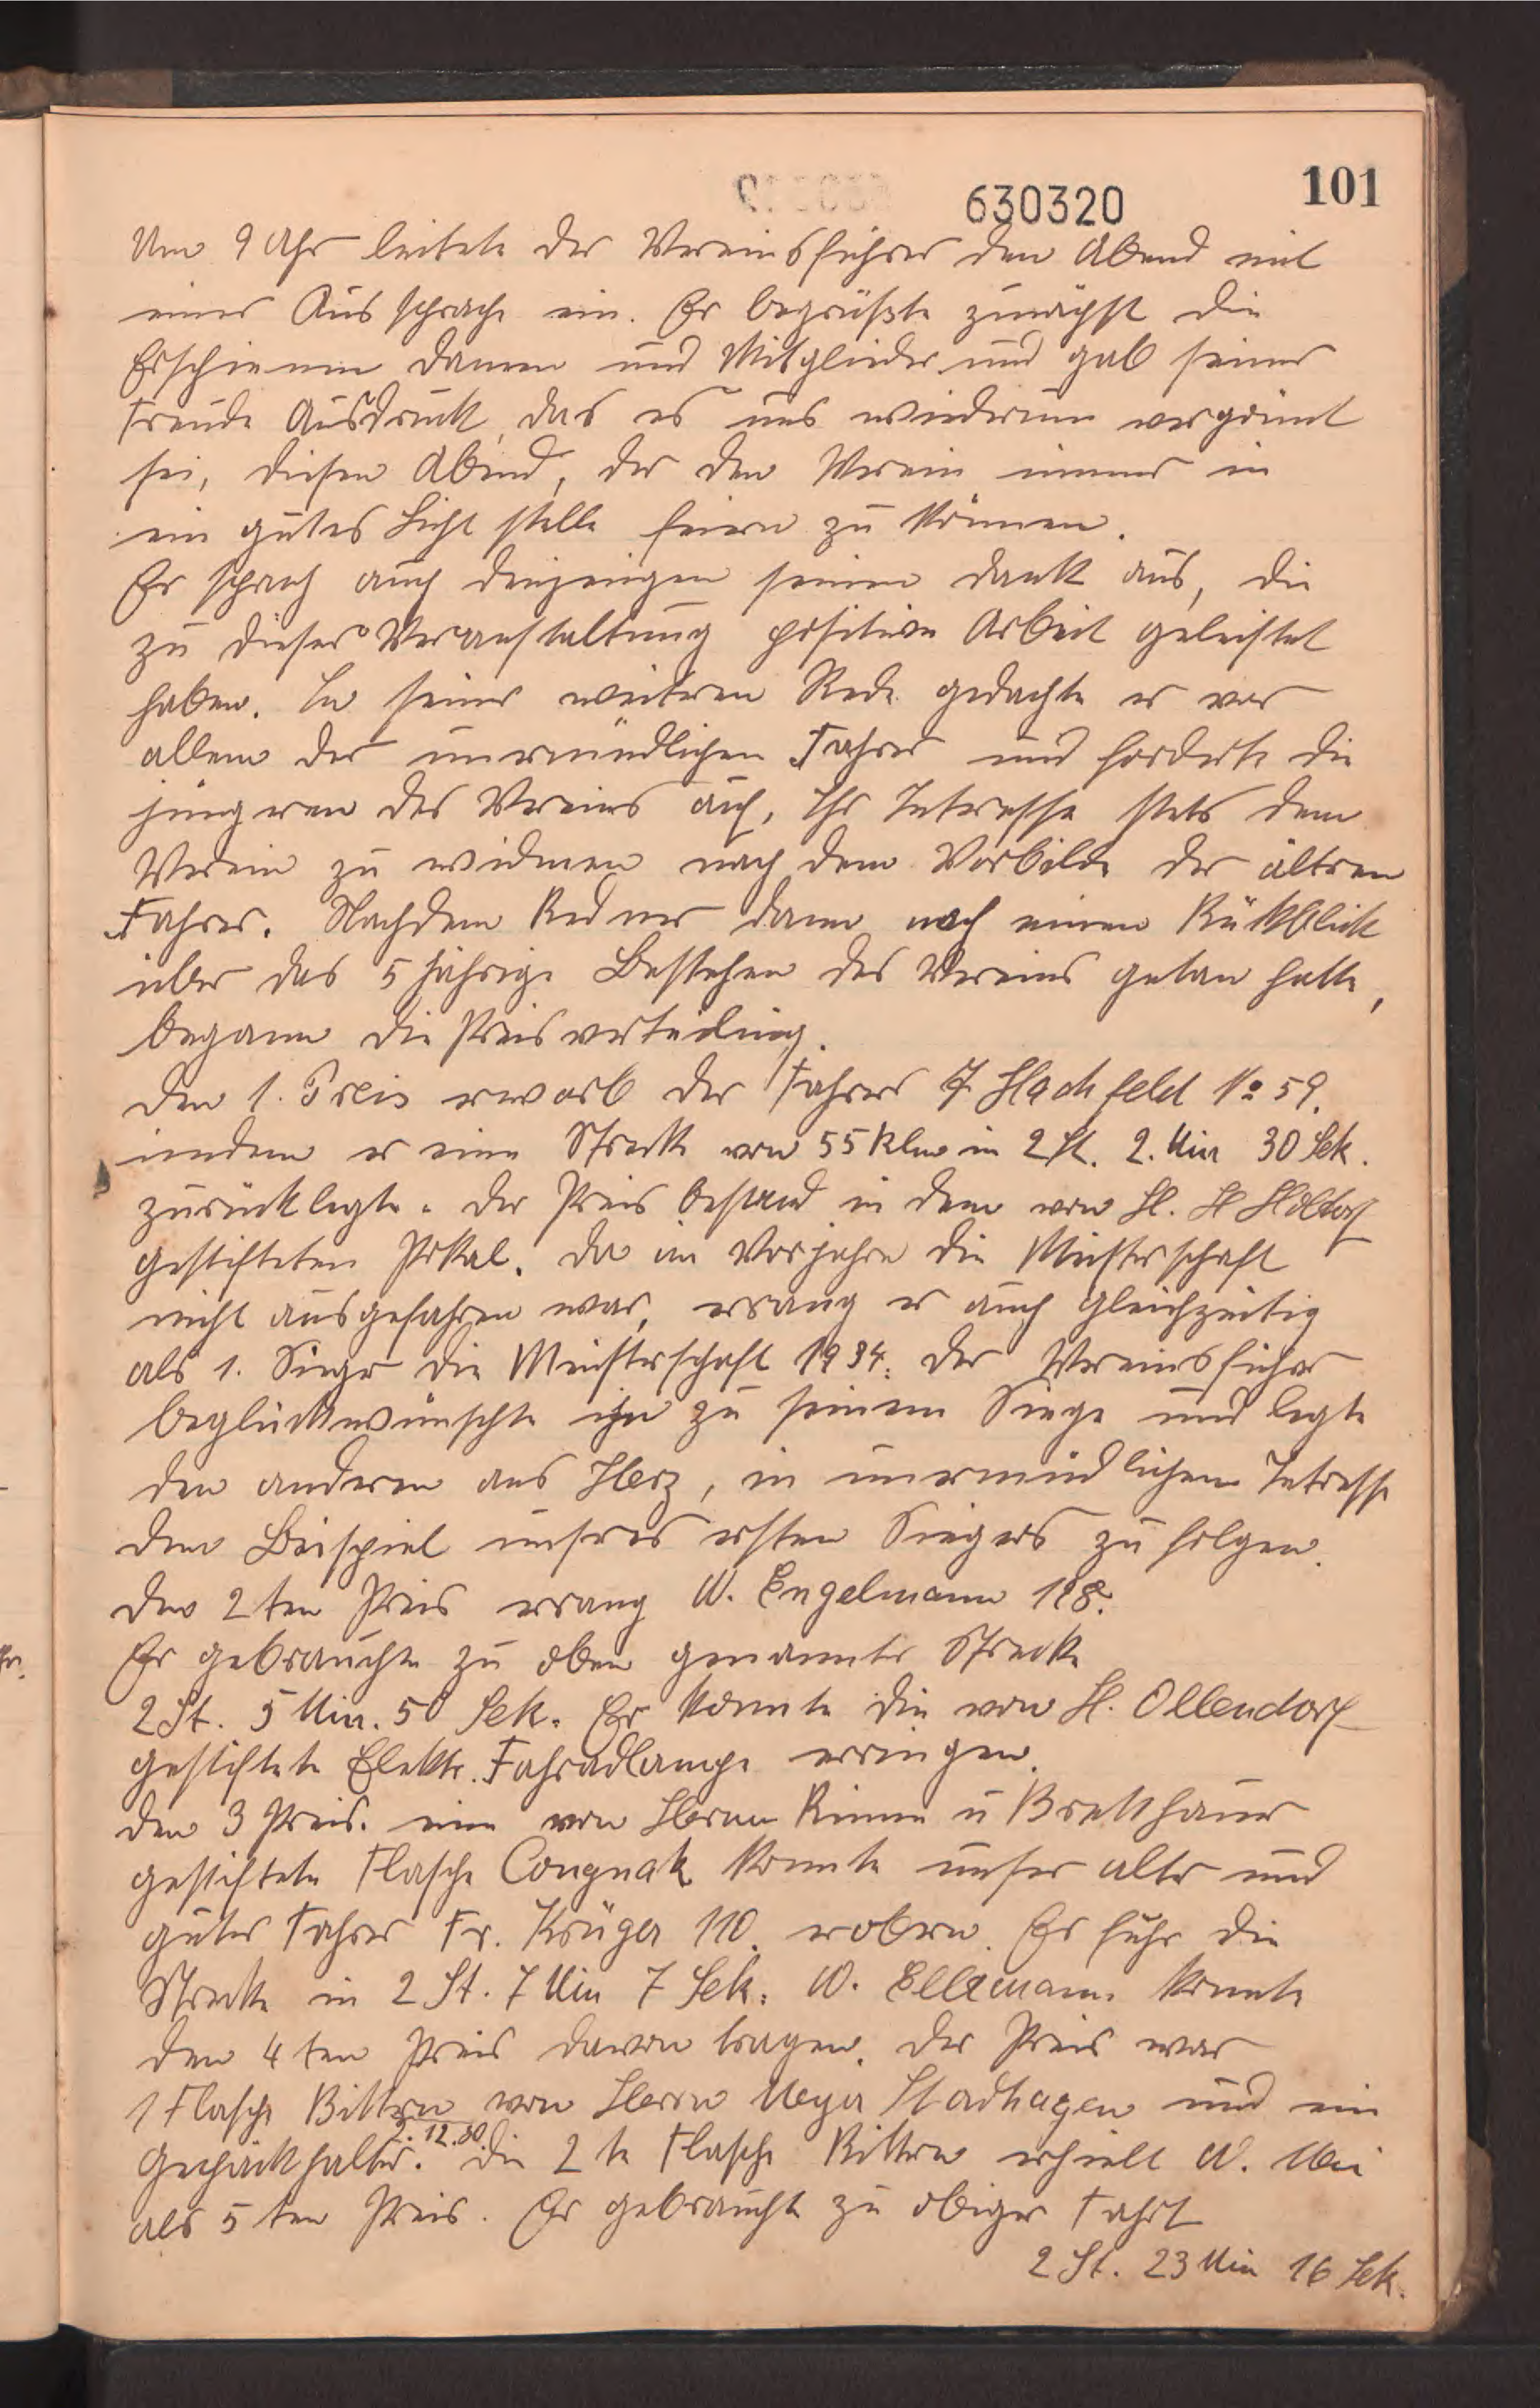 101
630320
Um 9 Uhr leitete der Vereinsführer den Abend mit
einer Aussprache ein. Er begrüßte zunächst die
Erschienen Damen und Mitglieder und gab seiner
Freude Ausdruck, das es uns wiederum vergönnt
sei, diesen Abend, der den Verein immer in
ein gutes Licht stelle feiern zu können.
Er sprach auch denjenigen seinen Dank aus, die
zu dieser Veranstaltung positive Arbeit geleistet
haben. In seiner weiteren Rede gedachte er vor
allem der unermüdlichen Fahrer und forderte die
jüngeren des Vereins auf, Ihr Interesse stets dem
Verein zu widmen nach dem Vorbilde der ältren
Fahrer. Nachdem Redner dann noch einen Rükblick
über das 5 jährige Bestehen des Vereins getan hatte,
begann die Preisverteilung.
Den 1. Preis erwarb der Fahrer F Hachfeld No 59.
indem er eine Strecke von 55 Klm in 2 St. 2. Min 30 Sek.
zurücklegte. Der Preis bestand in dem von H. H
gestifteten Pokal. Da im Vorjahre die Meisterschaft
nicht ausgefahren war, errang er auch gleichzeitig
als 1. Sieger die Meisterschaft 1934. Der Vereinsführer
beglückwünschte ihn zu seinem Siege und legte
den anderen ans Herz, in unermüdlichem Intresse
dem Beispiel unseres ersten Siegers zu folgen.
Den 2ten Preis errang W. Engelmann 128.
Er gebrauchte zu oben genannter Strecke
2 St. 5 Min. 50 Sek. Er konnte die von H. Ollendorf
gestiftete Elektr. Fahradlampe erringen.
Den 3 Preis. eine von Herrn Rinne u Bretthauer
gestiftete Flasche Congnak konnte unser alter und
guter Fahrer Fr. Krüger 110. erobern. Er fuhr die
Strecke in 2 St. 7 Min 7 Sek. W. Ellermann konnte
den 4ten Preis davon tragen. Der Preis war
1 Flasche Bittern von Herrn Meyer Stadhagen und ein
Gepäckhalter. 2.12.80. Die 2te Flasche Bittern erhielt W. Mei
als 5ten Preis. Er gebraucht zu obiger Fahrt
2 St. 23 Min 16 Sek.